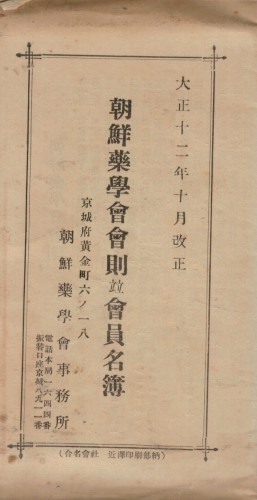 大正十二年十月改正
朝鮮藥學會會則並會員名簿
京城府黃金町六ノ一八
朝鮮藥學會事務所
電話本局一六四四番
振替口座京城八九一一番
(合名會社 近澤印刷部納)